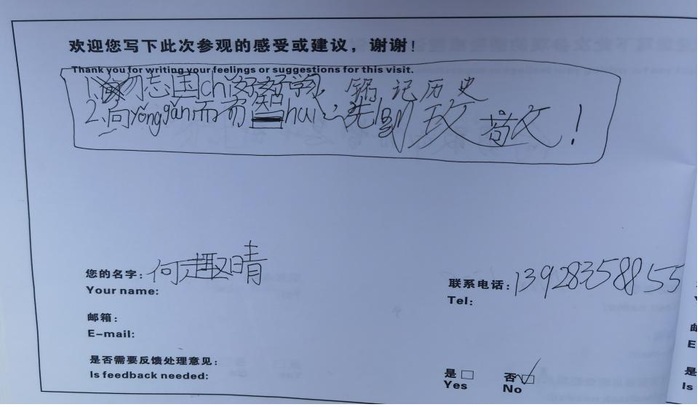 欢迎您写下此次参观的感受或建议，谢谢！
Thank you for writing your feelings or suggestions for this visit.
1.勿志国chi 铭记历史
2.向yǒnggǎn而有智hui 先 致敬！
您的名字：何趣晴
Your name:
联系电话：13928358855
Tel:
邮箱：
E-mail:
是否需要反馈处理意见：
Is feedback needed:
是□
Yes
否☑
No
邮
E
是
Is